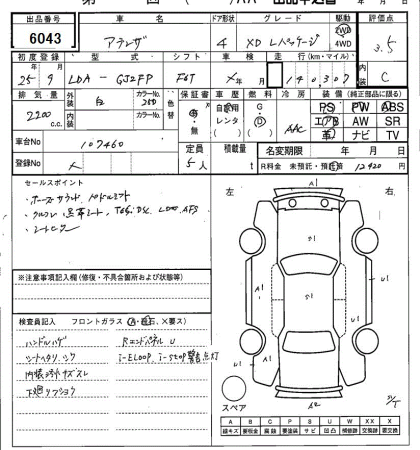 出品番号 車名 ドア形状 グレード 駆動 評価点
6043 アテンザ 4 XD Lパッケージ 2WD 4WD 3.5
初度登録 型式 シフト 車検 走行(km・マイル) 内装
25年9月 LDA-GJ2FP F6T X年 月 140,307 C
排気量 外装色 カラーNo. 色替 保証書 車歴 燃料 冷房 装備(純正部品に限る)
2200c.c. 白 有・無 自家用 レンタ G D AAC PS PW ABS
エアB AW SR
革 ナビ TV
車台No 107460 定員 積載量 名変期限 年 月 日
登録No 5人 t R料金 未預託・預託済 12420円
セールスポイント
・ボーズサウンド パドルシフト
・クルコン 黒革シート
・シートヒーター
左 右
A1 S1 S1 A1 U1 U1 A1 A2
※注意事項記入欄(修復・不具合箇所および状態等)
検査員記入 フロントガラス(A・飛石、X要ス)
ハンドルハゲ RエンドパネルU
シートヘタリ、シワ i-ELOOP、i-stop警告点灯
内装汚レキズスレ
下廻リサビショウ
スペア
A B C P S U W X XX X
線キズ 要板金 腐蝕 要塗装 サビ 凹凸 補修跡 交換跡 要交換